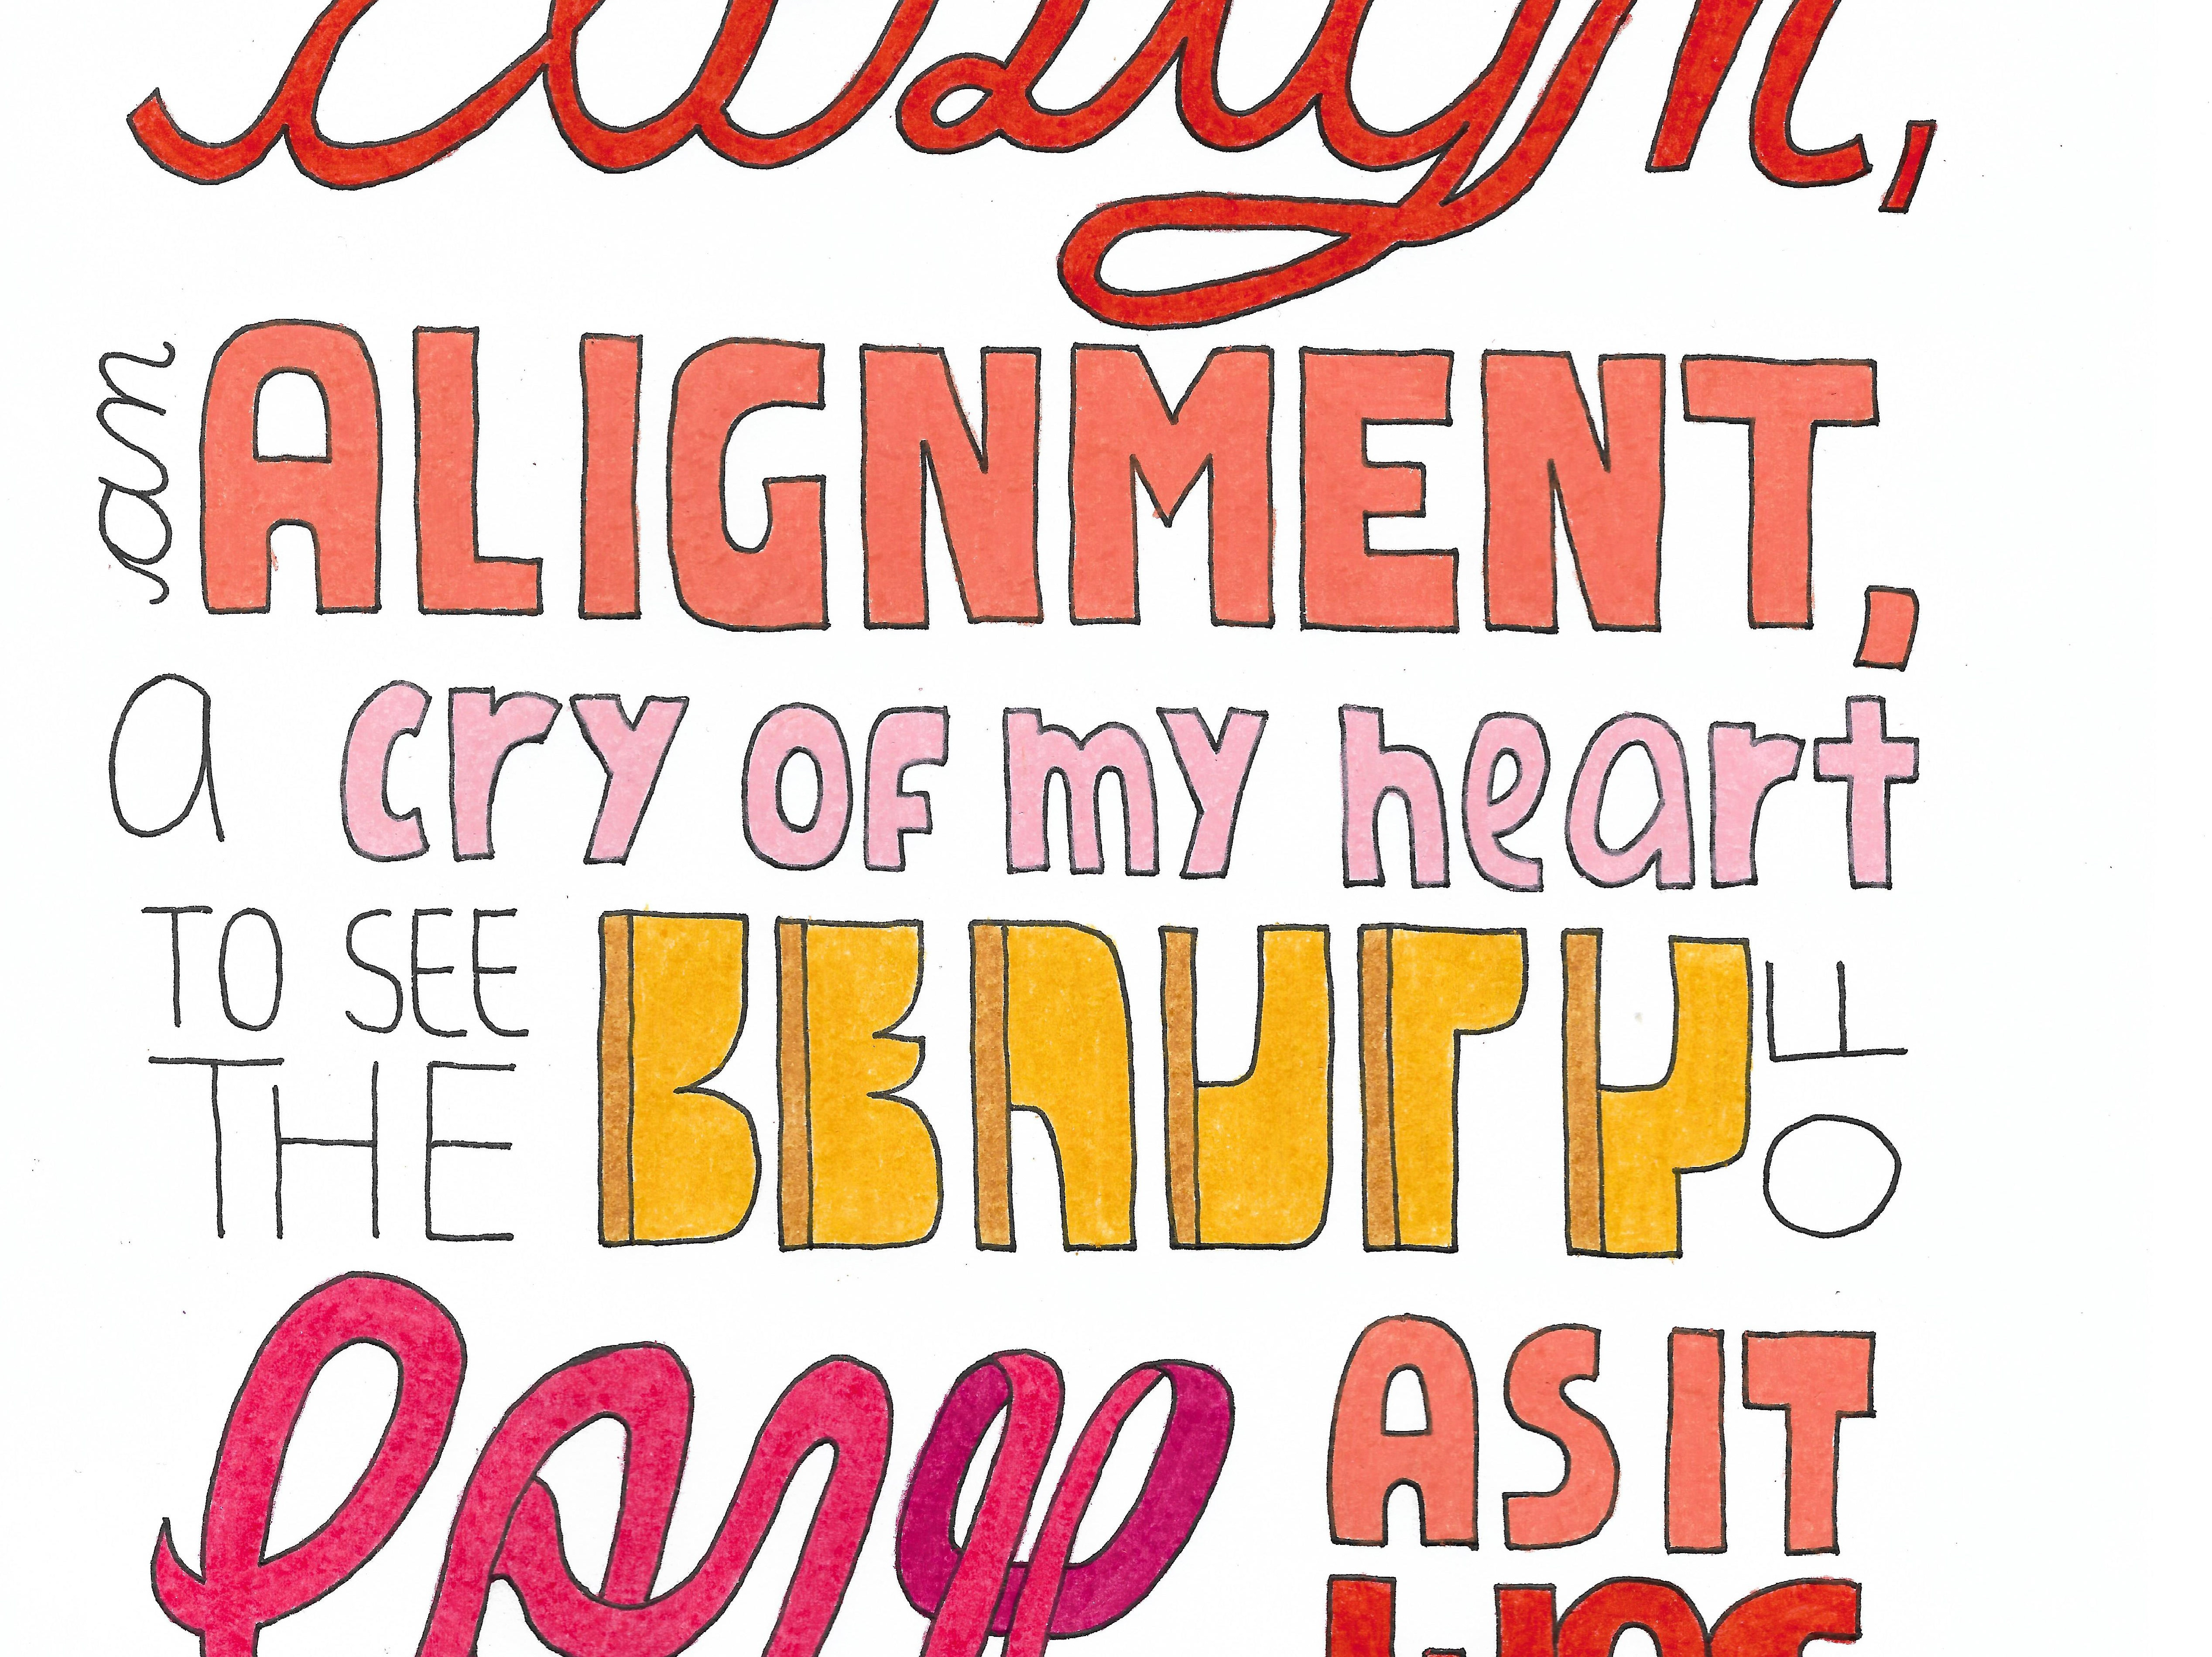 an ALIGNMENT,
a cry of my heart
TO SEE
THE BEAUTY OF
AS IT